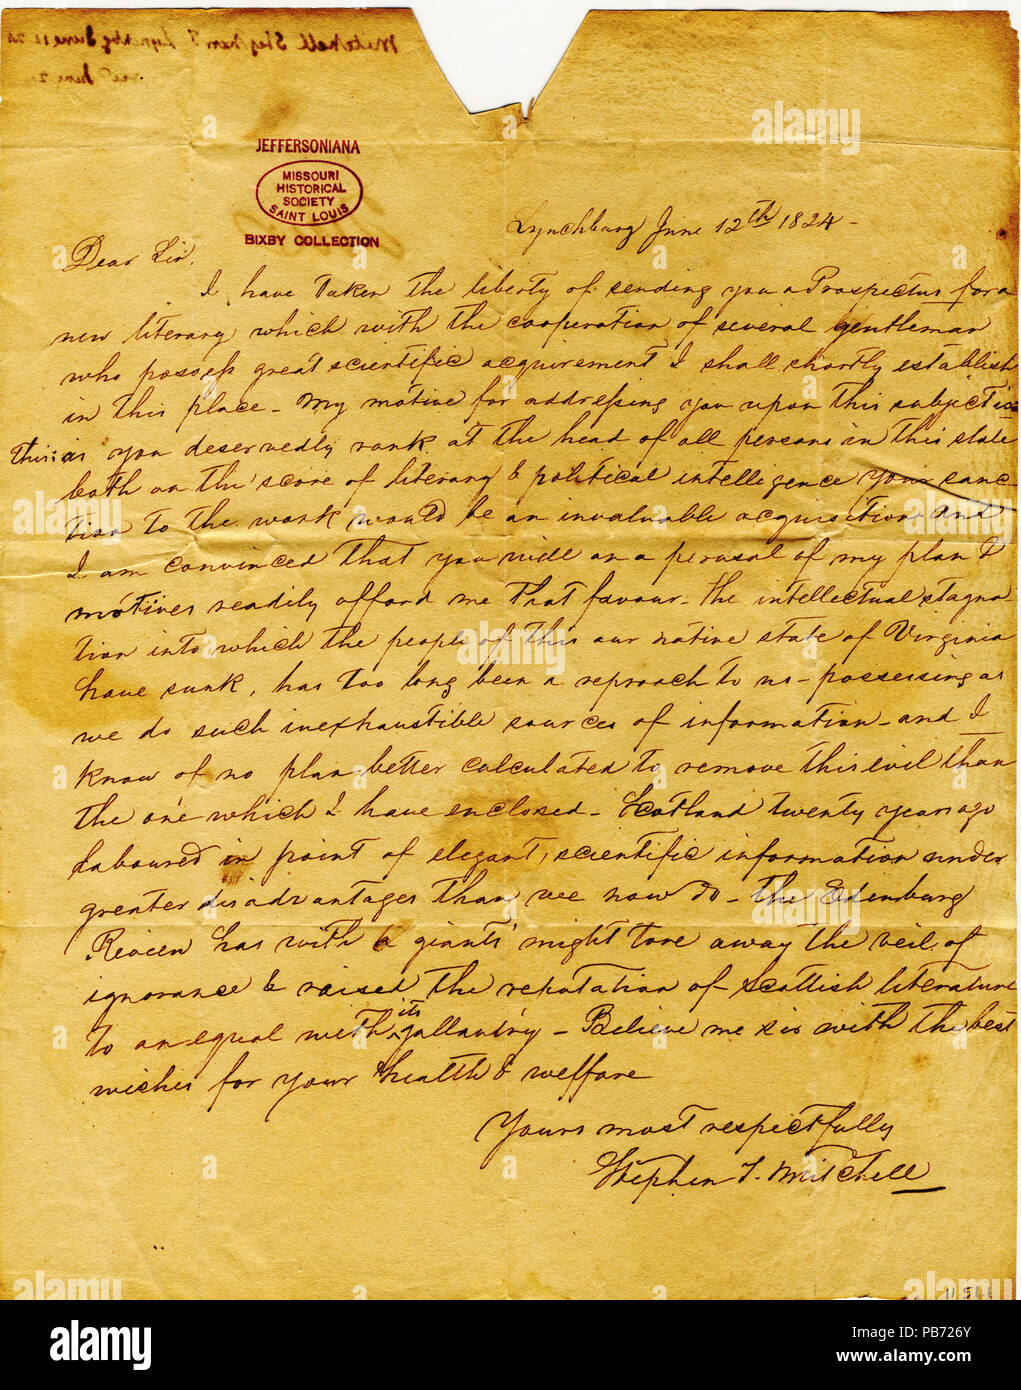 Mitchell Stephen T. Lynchbg June 12. 24
recd June 2
JEFFERSONIANA
MISSOURI
HISTORICAL
SOCIETY
SAINT LOUIS
BIXBY COLLECTION
Lynchburg June 12th 1824 -
Dear Sir.
I have taken the liberty of sending you a Prospectus for a
new literary which with the cooperation of several gentleman
who possess great scientific acquirement I shall shortly establish
in this place - My motive for addressing you upon this subject is
this: as you deservedly rank at the head of all persons in this state
both on the score of literary & political intelligence your sanc-
tion to the work would be an invaluable acquisition and
I am convinced that you will on a perusal of my plan &
motives readily afford me that favour - the intellectual stagna
tion into which the people of this our native state of Virginia
have sunk, has too long been a reproach to us - possessing as
we do such inexhaustible sources of information - and I
know of no plan better calculated to remove this evil than
the one which I have enclosed - Scotland twenty years ago
laboured in point of elegant, scientific information under
greater disadvantages than we now do - the Edinburg
Review has with a giants' might tore away the veil of
ignorance & raised the reputation of Scottish literature
to an equal with its gallantry - Believe me sir with the best
wishes for your health & welfare
Yours most respectfully
Stephen T. Mitchell
alamy
Image ID: PB726Y
www.alamy.com